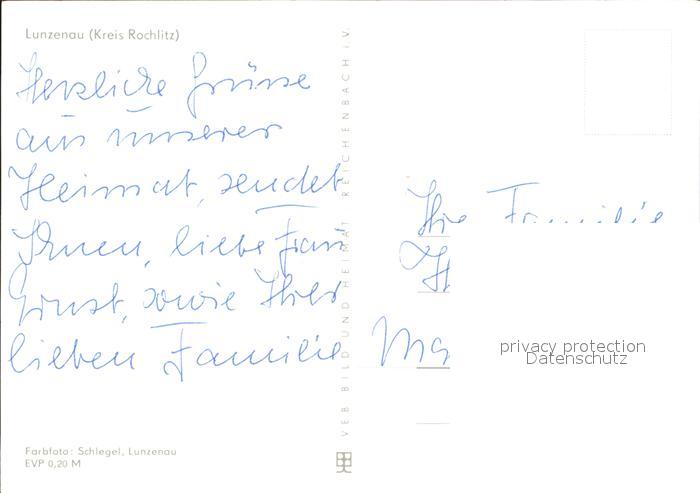 Lunzenau (Kreis Rochlitz)
Herzliche Grüsse
aus unserer
Heimat, sendet
Ihnen, liebe Frau
Ernst, sowie Ihrer
lieben Familie
Ihre Familie
VEB BILD UND HEIMAT REICHENBACH i.V.
privacy protection
Datenschutz
Farbfoto: Schlegel, Lunzenau
EVP 0,20 M